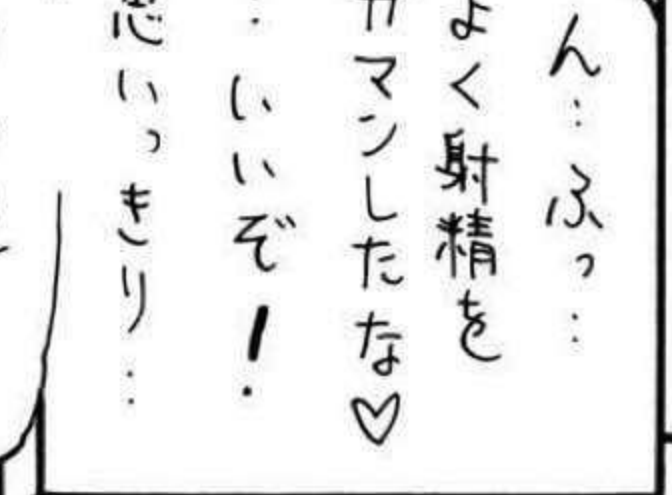 ん…ふっ…
よく射精を
ガマンしたな♡
・いいぞ！
思いっきり…